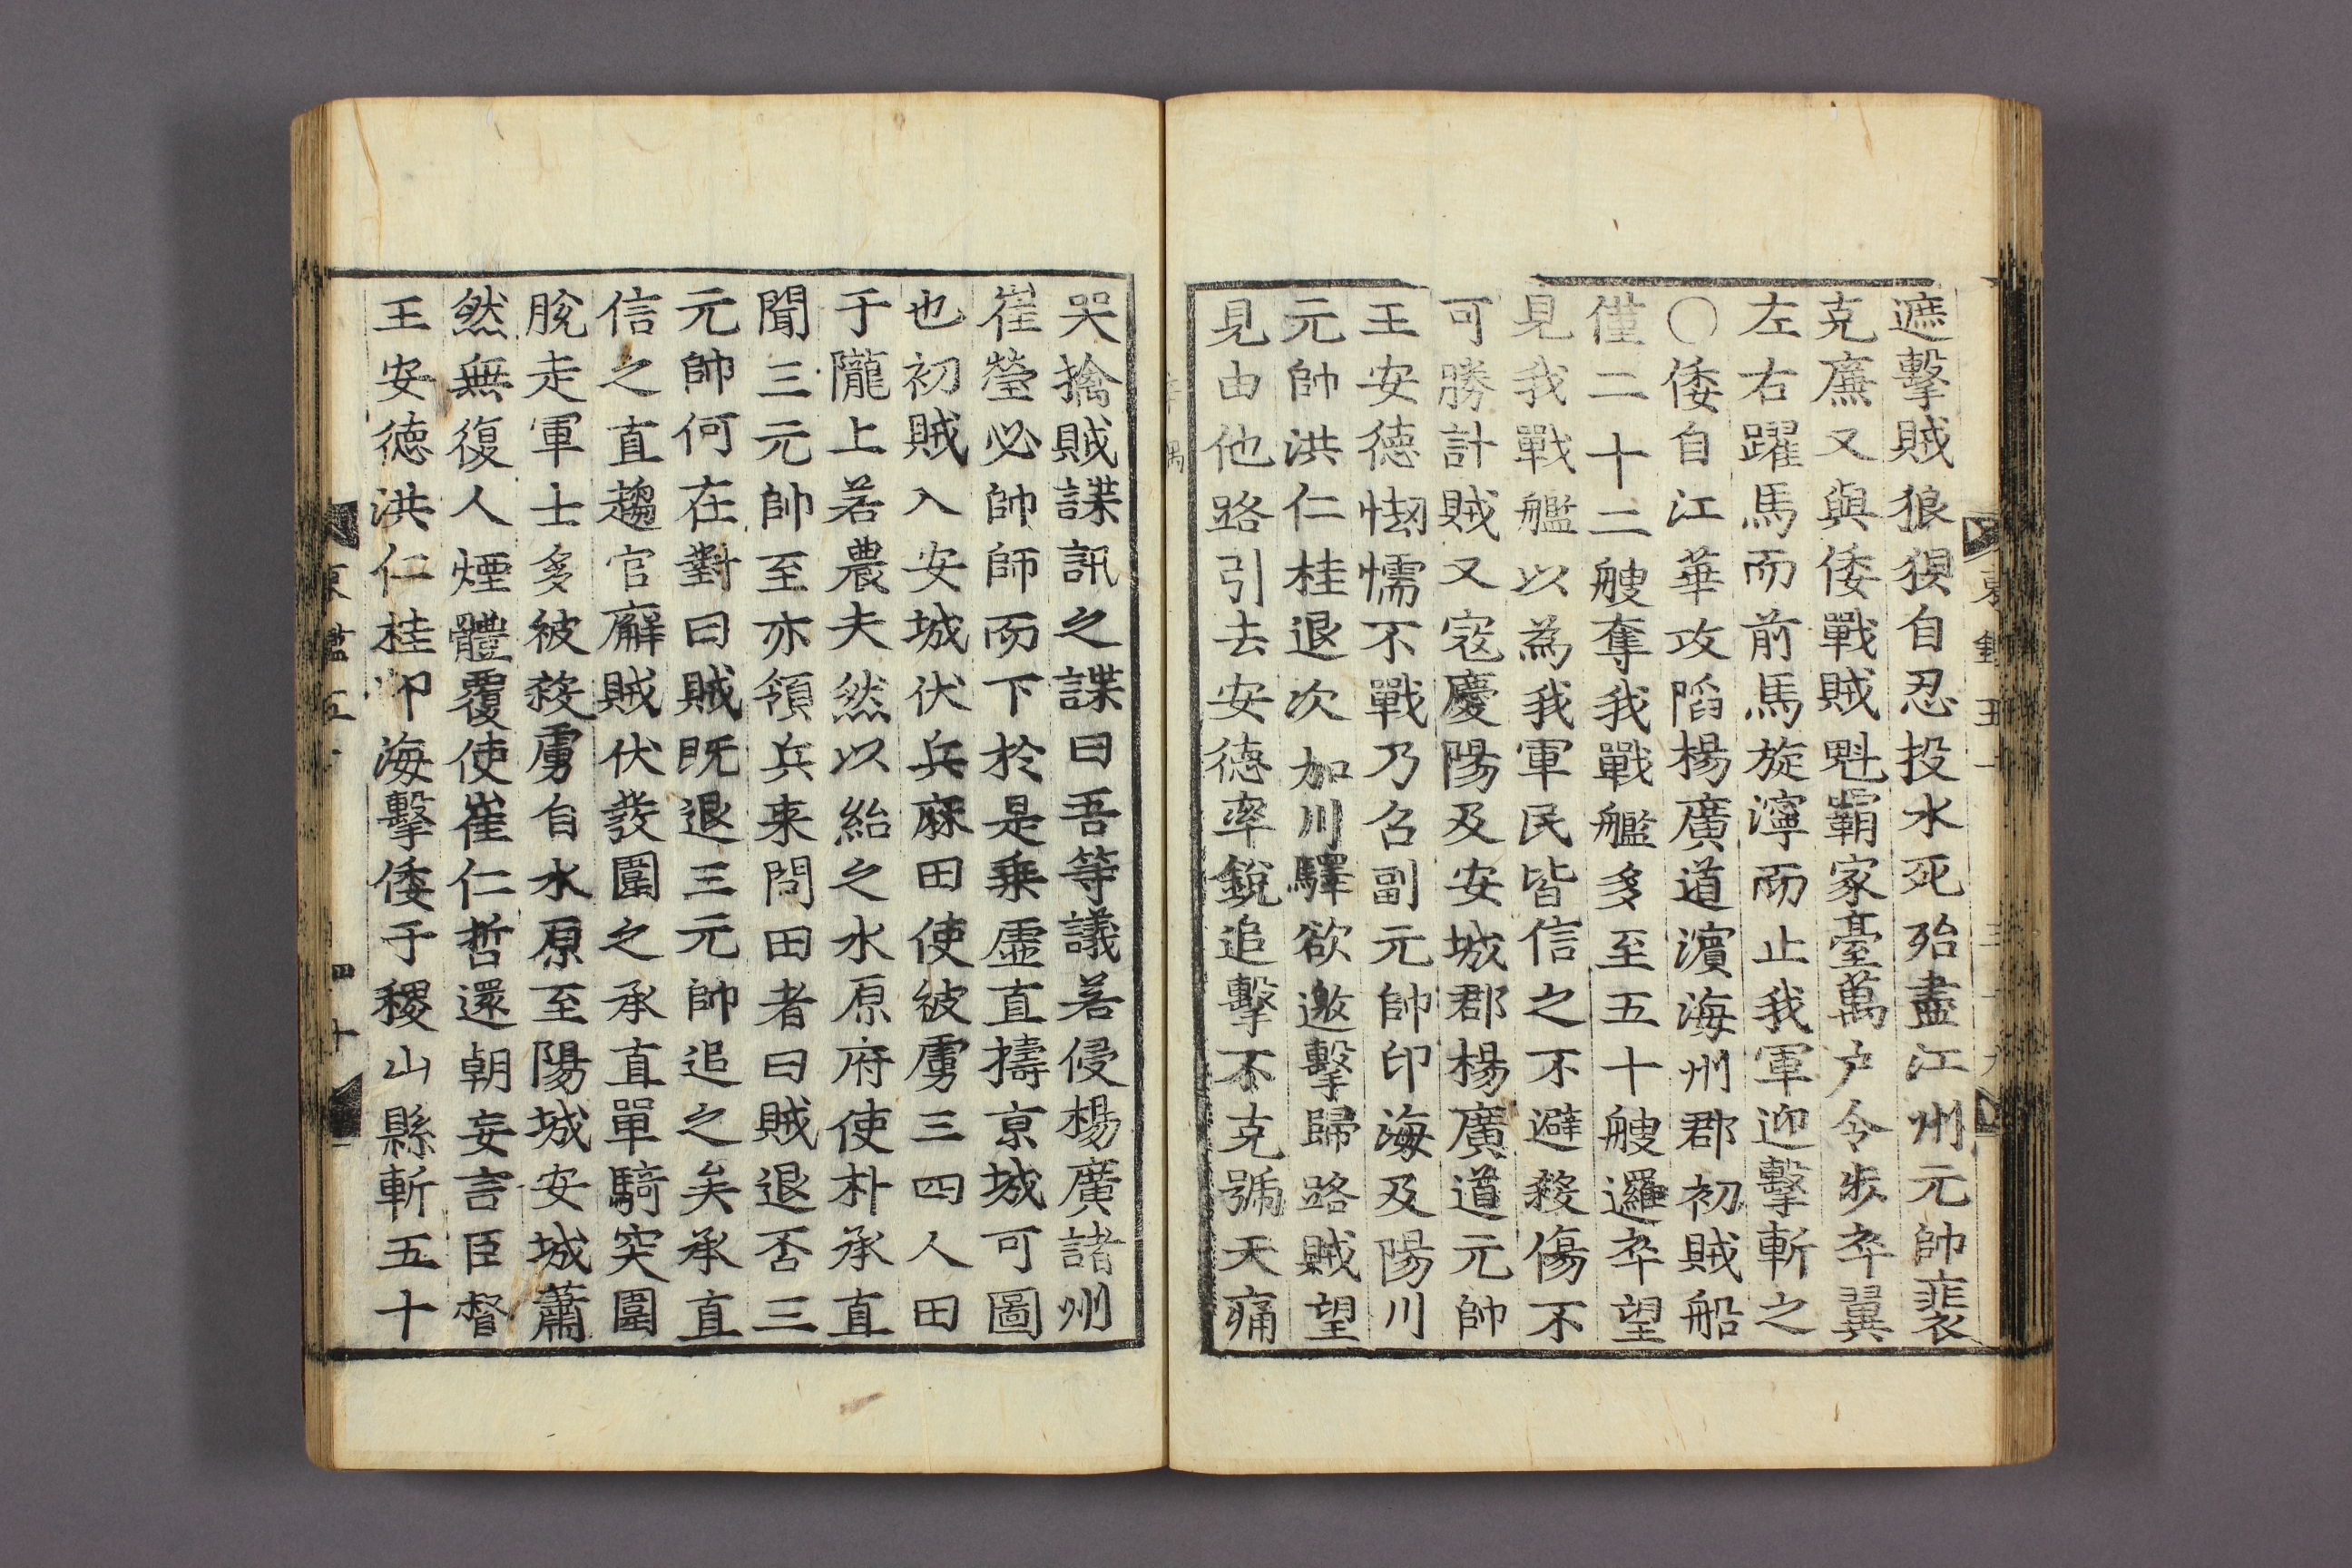 遮擊賊狼狽自忍投水死殆盡江州元帥裵
克廉又與倭戰賊魁霸家臺萬户令步卒翼
左右躍馬而前馬旋濘而止我軍迎擊斬之
〇倭自江華攻䧟楊廣道濵海州郡初賊船
僅二十二艘奪我戰艦多至五十艘邏卒望
見我戰艦以為我軍民皆信之不避殺傷不
可勝計賊又寇慶陽及安城郡楊廣道元帥
王安德㤼懦不戰乃召副元帥印海及陽川
元帥洪仁桂退次加川驛欲邀擊歸路賊望
見由他路引去安德率銳追擊不克號天痛
哭擒賊諜訊之諜曰吾等議若侵楊廣諸州
崔瑩必帥師而下於是乗虛直擣京城可圖
也初賊入安城伏兵麻田使彼虜三四人田
于隴上若農夫然以紿之水原府使朴承直
聞三元帥至亦領兵来問田者曰賊退否三
元帥何在對曰賊旣退三元帥追之矣承直
信之直趨官廨賊伏發圍之承直單騎突圍
脫走軍士多被殺虜自水原至陽城安城蕭
然無復人煙體覆使崔仁哲還朝妄言臣督
王安德洪仁桂印海擊倭于稷山縣斬五十
四十